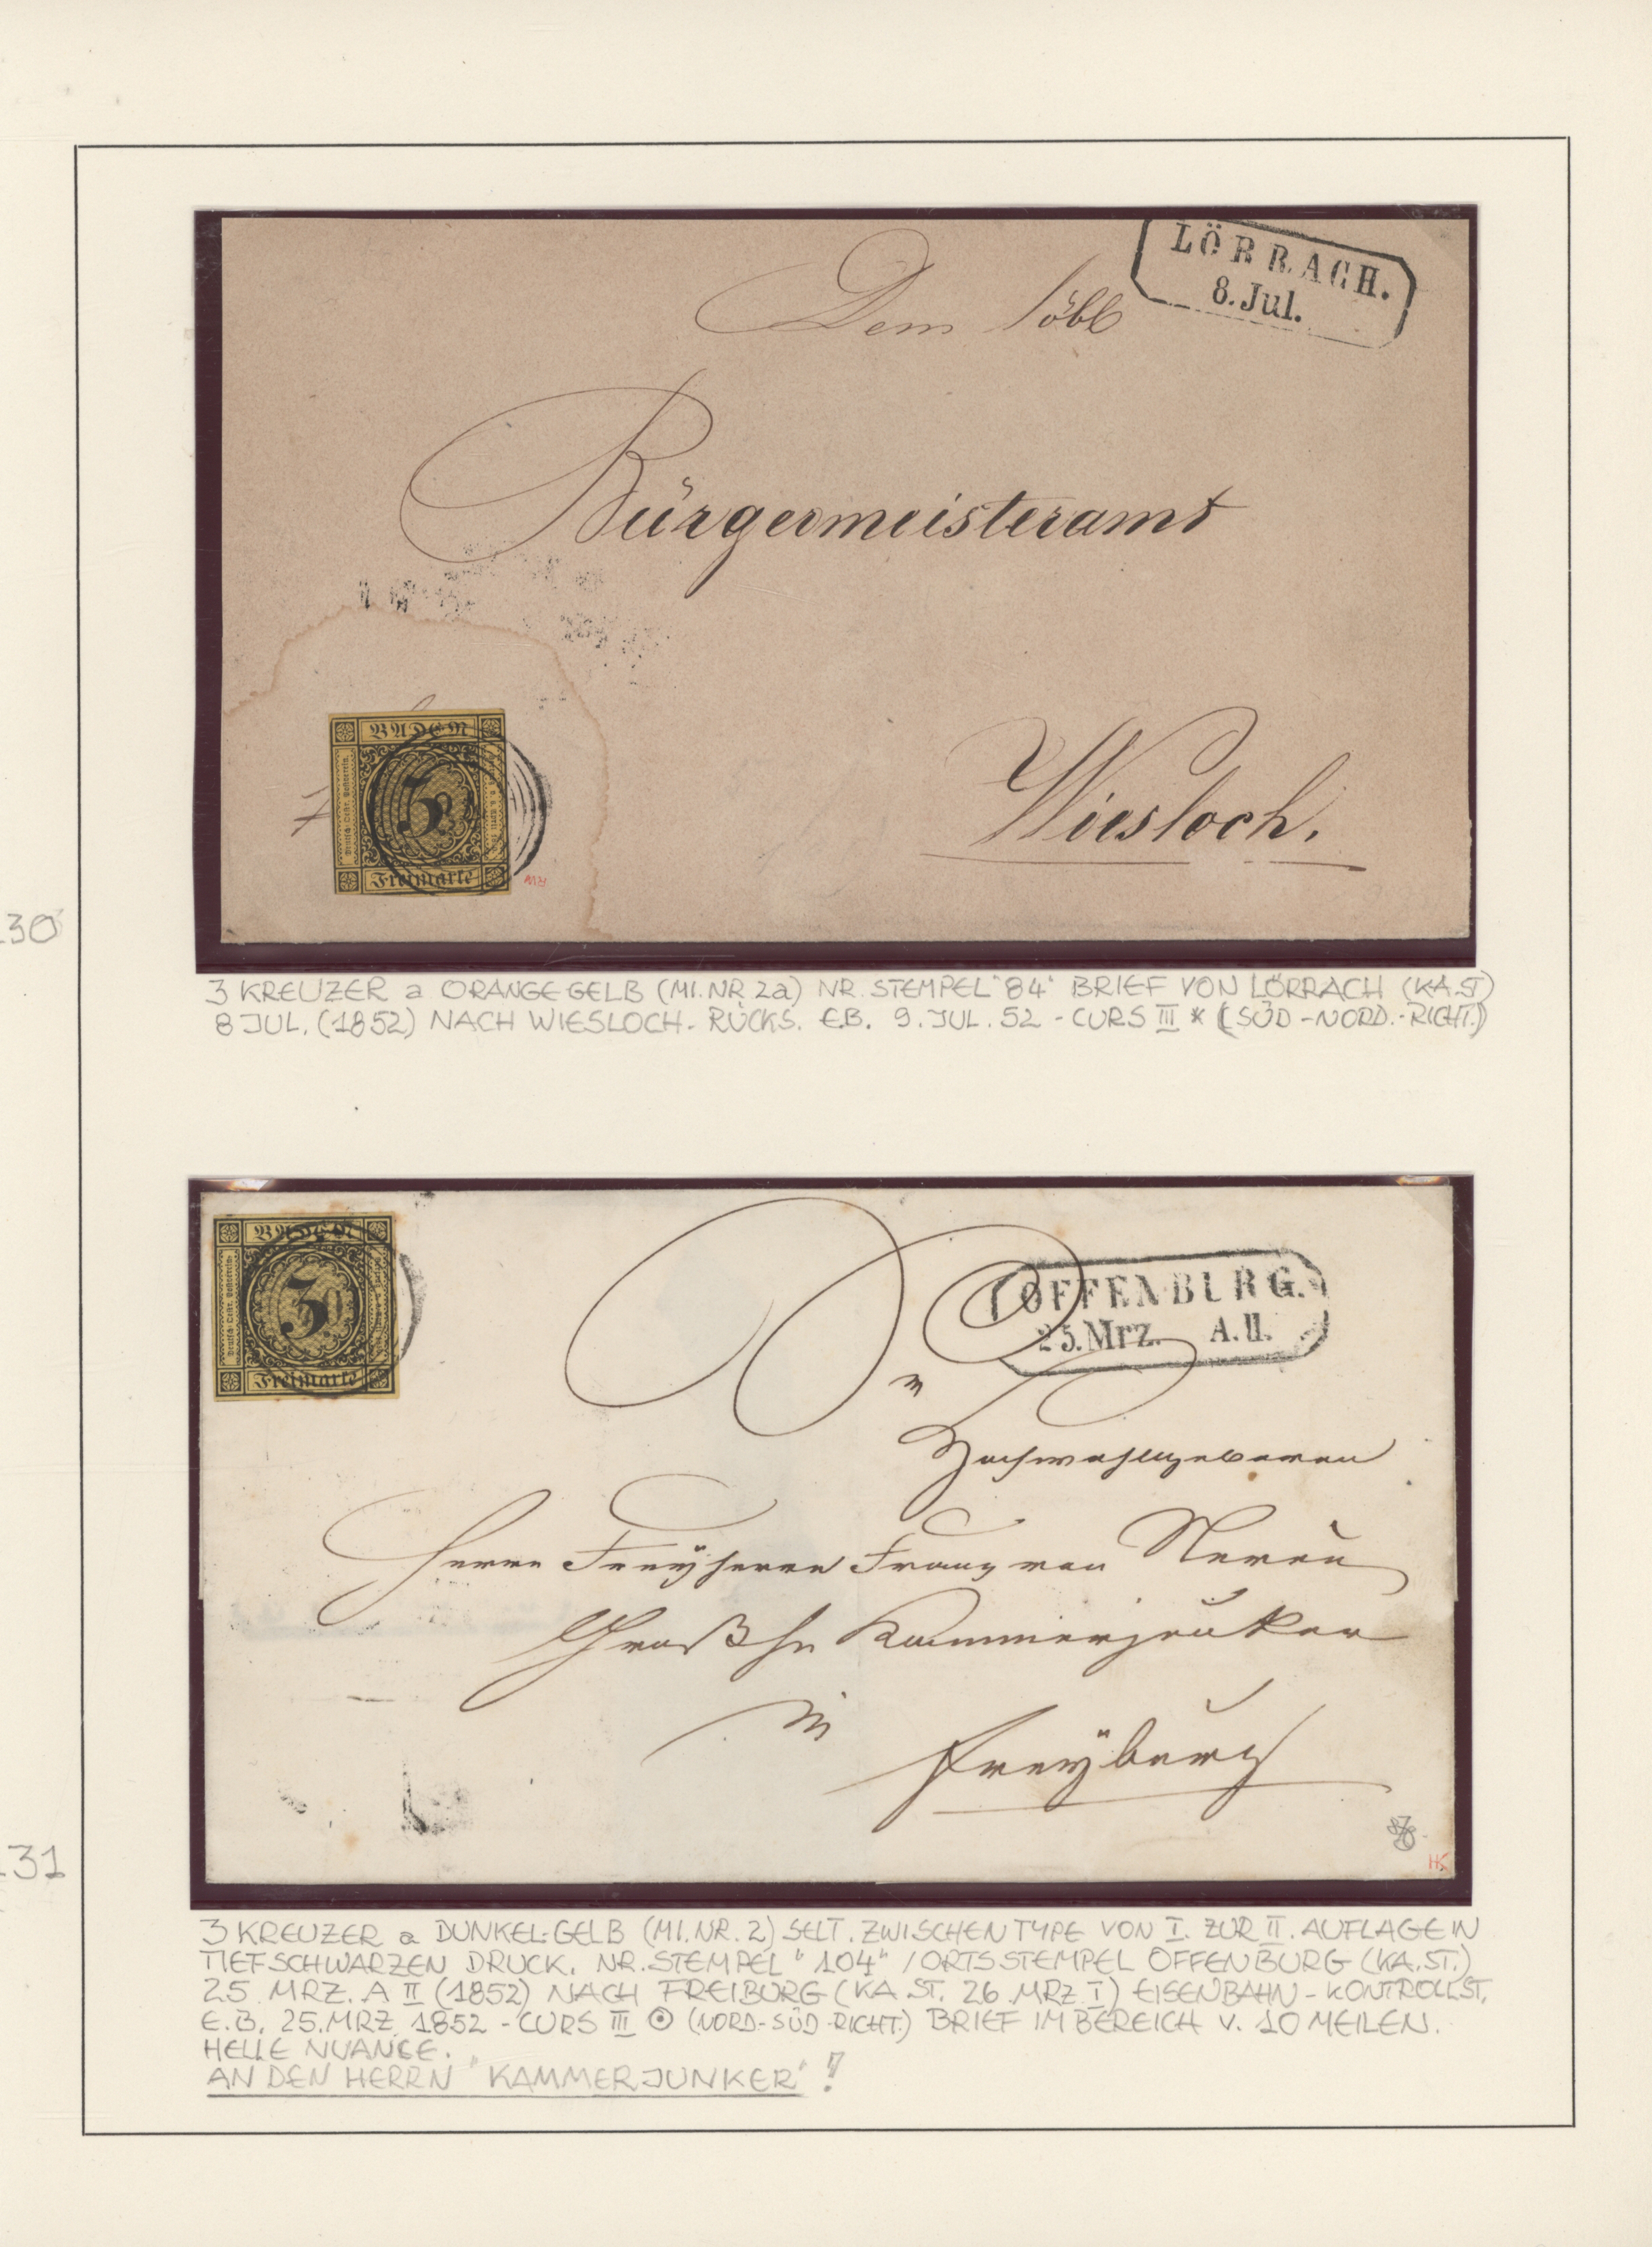 LÖRRACH.
8. Jul.
Dem löbl
Bürgermeisteramt
Wiesloch.
BADEN
3
Freimarke
130
3 KREUZER a ORANGEGELB (MI.NR. 2a) NR. STEMPEL "84" BRIEF VON LÖRRACH (KA.ST)
8 JUL. (1852) NACH WIESLOCH - RÜCKS. E.B. 9. JUL. 52 - CURS III * (SÜD-NORD.-RICHT.)
BADEN
3
Freimarke
OFFENBURG.
25. Mrz. A.II.
Hochwohlgeboren
Herrn Freÿherrn Franz von Neveu
Großh Kammerjunker
in
Freÿburg
HK
131
3 KREUZER a DUNKEL-GELB (MI.NR. 2) SELT. ZWISCHENTYPE VON I. ZUR II. AUFLAGE IN
TIEFSCHWARZEN DRUCK. NR. STEMPEL "104" / ORTSSTEMPEL OFFENBURG (KA.ST.)
25 MRZ. A II (1852) NACH FREIBURG (KA ST. 26 MRZ I) EISENBAHN - KONTROLLST.
E.B. 25. MRZ 1852 - CURS III ⊙ (NORD-SÜD-RICHT.) BRIEF IM BEREICH V. 10 MEILEN.
HELLE NUANCE.
AN DEN HERRN "KAMMERJUNKER" !